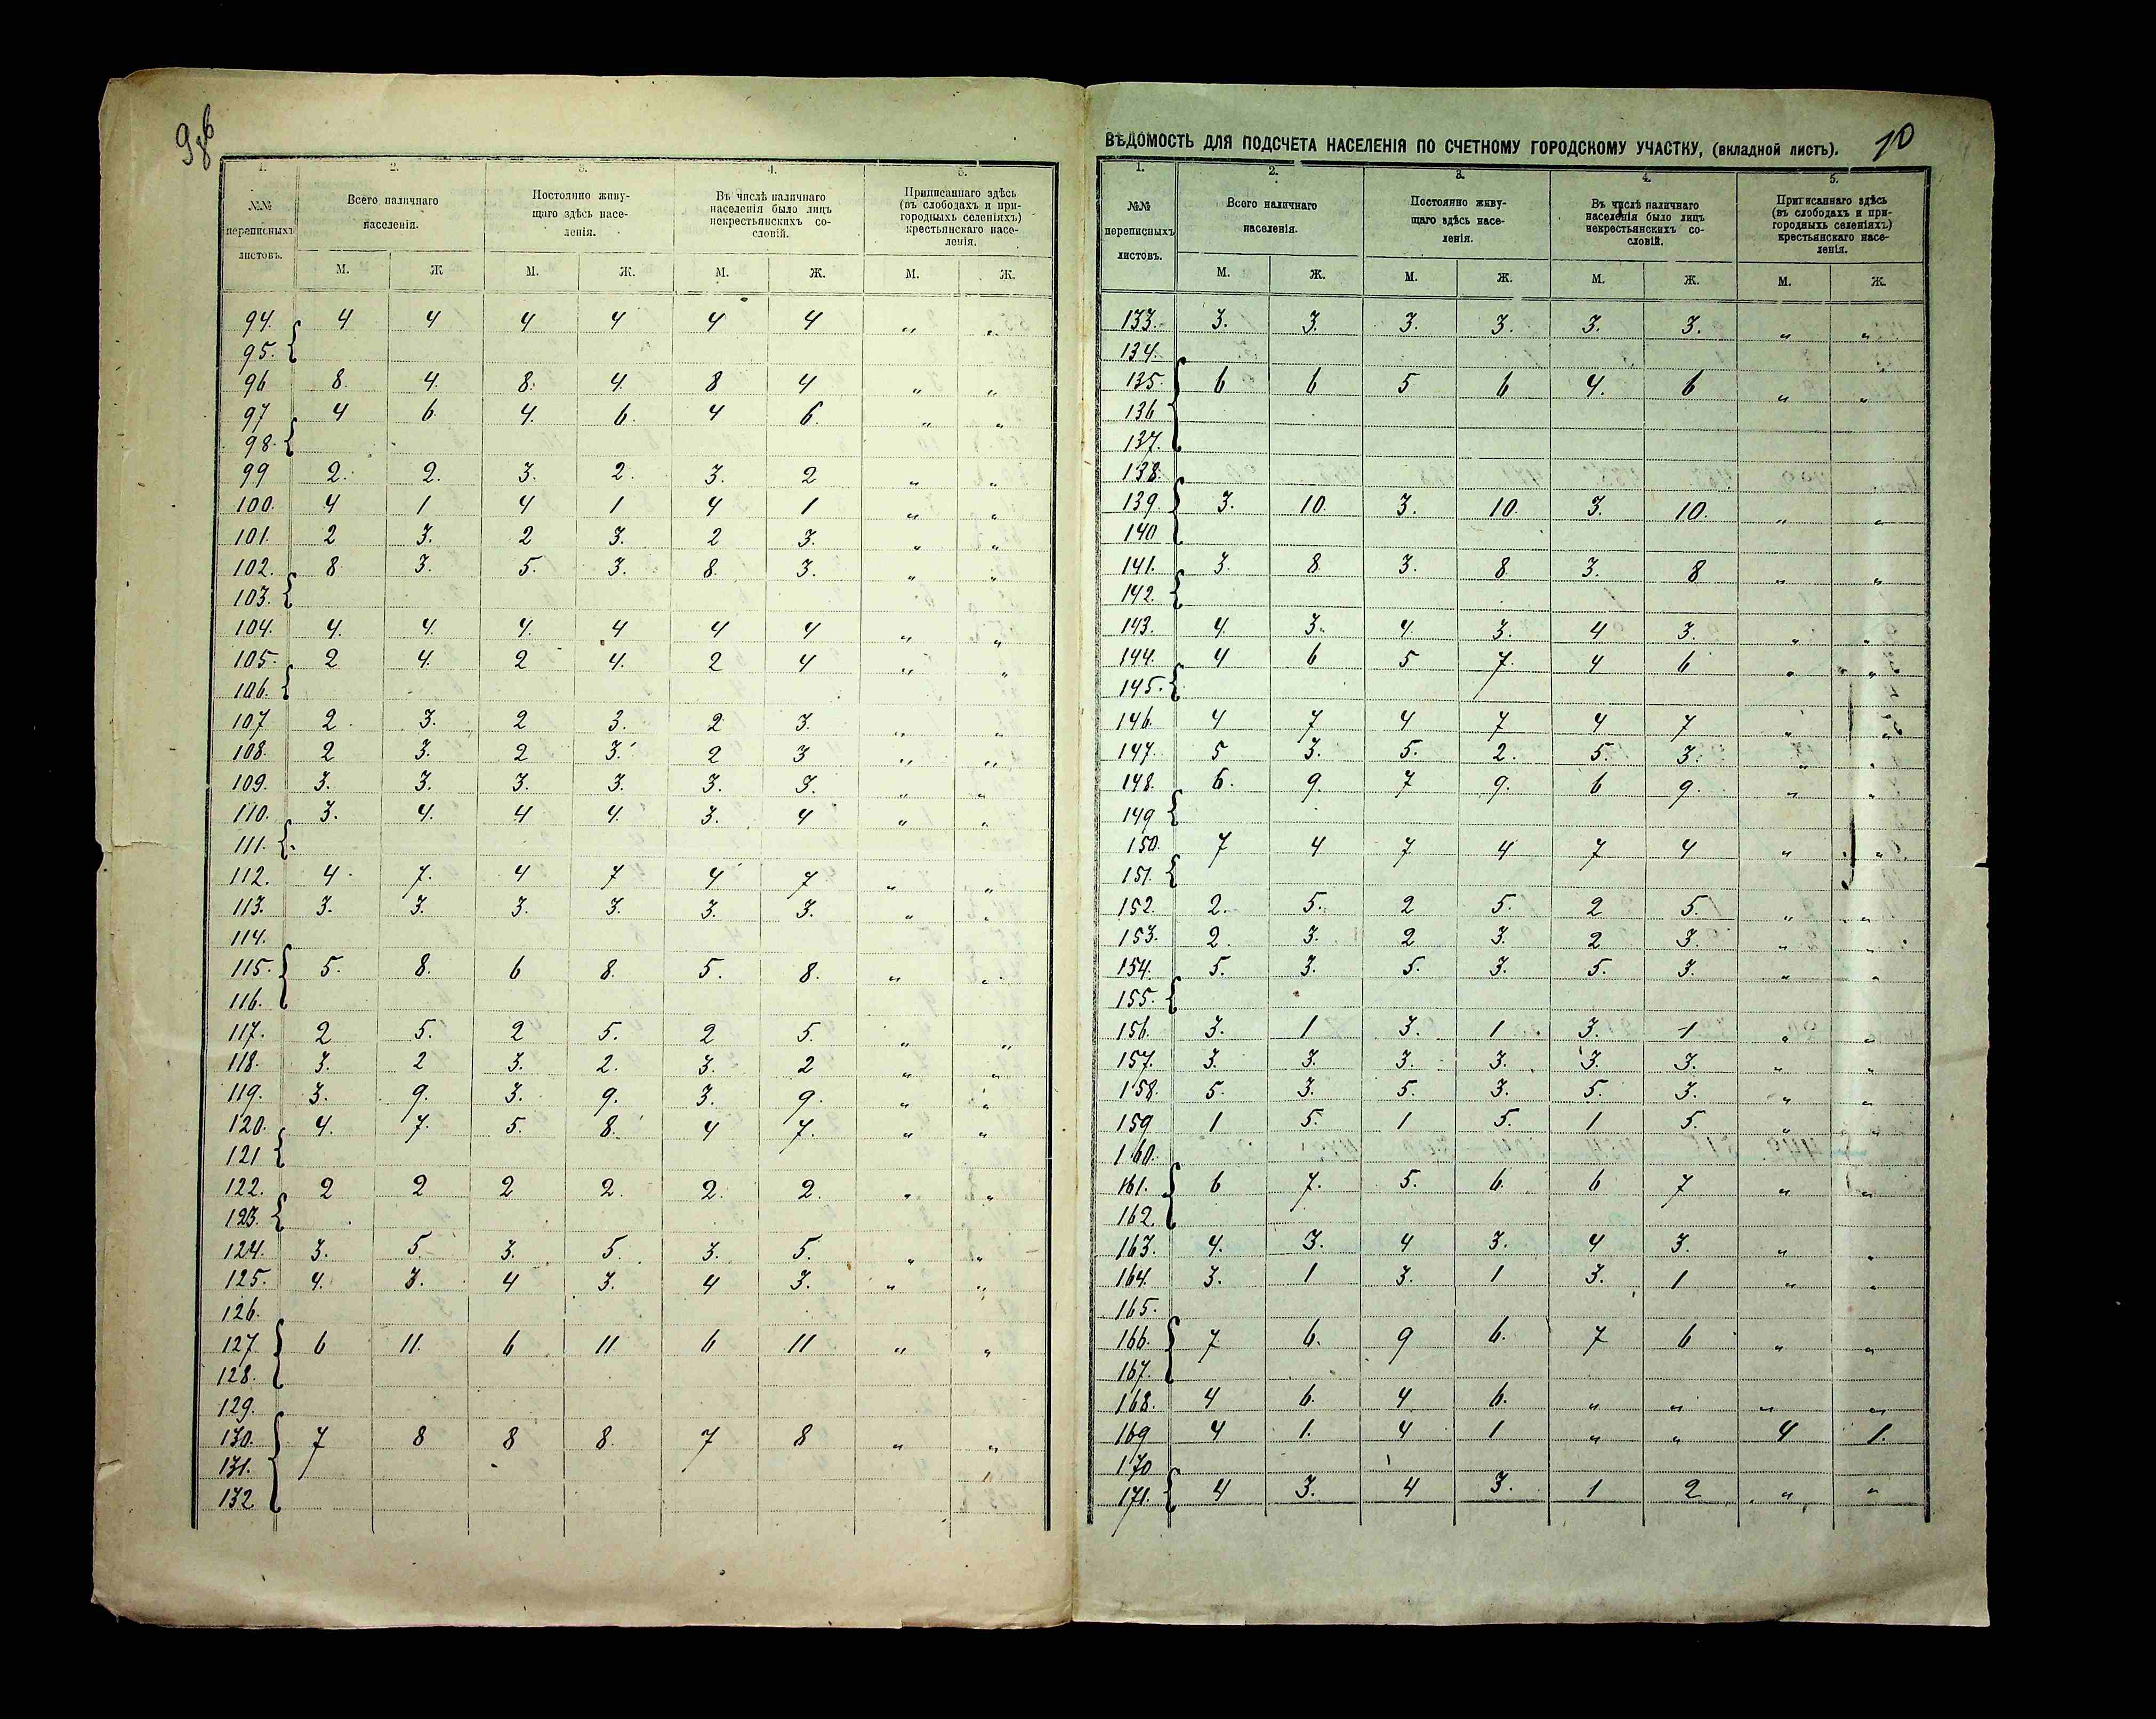 98б
1. 2. 3. 4. 5.
№№ переписныхъ листовъ. Всего наличнаго населенія. Постоянно живущаго здѣсь населенія. Въ числѣ наличнаго населенія было лицъ некрестьянскихъ сословій. Приписаннаго здѣсь (въ слободахъ и пригородныхъ селеніяхъ) крестьянскаго населенія.
М. Ж М. Ж. М. Ж. М. Ж.
94. 4 4 4 4 4 4 " "
95.
96 8. 4. 8. 4. 8 4 " "
97 4 6. 4. 6. 4 6. " "
98.
99 2. 2. 3. 2. 3. 2 " "
100. 4 1 4 1 4 1 " "
101. 2 3. 2 3. 2 3. " "
102. 8 3. 5. 3. 8. 3. " "
103.
104. 4. 4. 4. 4 4 4 " "
105. 2 4. 2 4. 2 4 " "
106.
107 2. 3. 2 3. 2 3. " "
108. 2 3. 2 3. 2 3 " "
109. 3. 3. 3. 3. 3. 3. " "
110. 3. 4. 4 4. 3. 4 " "
111.
112. 4. 7. 4 7 4 7 " "
113. 3. 3. 3. 3. 3. 3. " "
114.
115. 5. 8. 6 8. 5. 8. " "
116.
117. 2 5. 2 5. 2 5. " "
118. 3. 2 3. 2. 3. 2 " "
119. 3. 9. 3. 9. 3. 9. " "
120. 4. 7. 5. 8. 4 7. " "
121
122. 2 2 2 2. 2. 2. " "
123.
124. 3. 5. 3. 5. 3. 5. " "
125. 4. 3. 4 3. 4 3. " "
126.
127 6 11. 6 11 6 11 " "
128.
129.
130. 7 8 8 8. 7 8 " "
131.
132.
ВѢДОМОСТЬ ДЛЯ ПОДСЧЕТА НАСЕЛЕНІЯ ПО СЧЕТНОМУ ГОРОДСКОМУ УЧАСТКУ, (вкладной листъ). 10
1. 2. 3. 4. 5.
№№ переписныхъ листовъ. Всего наличнаго населенія. Постоянно живущаго здѣсь населенія. Въ числѣ наличнаго населенія было лицъ некрестьянскихъ сословій. Приписаннаго здѣсь (въ слободахъ и пригородныхъ селеніяхъ) крестьянскаго населенія.
М. Ж. М. Ж. М. Ж. М. Ж.
133. 3. 3. 3. 3. 3. 3. " "
134.
135. 6 6 5 6 4. 6 " "
136
137.
138.
139. 3. 10. 3. 10. 3. 10. " "
140
141. 3. 8 3. 8 3. 8 " "
142.
143. 4. 3. 4. 3. 4 3. " "
144. 4 6 5 7. 4 6 " "
145.
146. 4 7 4 7 4 7 " "
147. 5 3. 5. 2. 5. 3. " "
148. 6. 9. 7 9. 6 9. " "
149
150. 7 4 7 4 7 4 " "
151.
152. 2. 5. 2 5. 2 5. " "
153. 2. 3. 2 3. 2 3. " "
154. 5. 3. 5. 3. 5. 3. " "
155.
156. 3. 1 3. 1 3. 1 " "
157. 3. 3. 3. 3. 3. 3. " "
158. 5. 3. 5. 3. 5. 3. " "
159. 1 5. 1 5. 1 5. " "
160.
161. 6 7. 5. 6. 6 7 " "
162.
163. 4. 3. 4 3. 4 3. " "
164. 3. 1 3. 1 3. 1 " "
165.
166. 7 6. 9 6. 7 6 " "
167.
168. 4 6. 4 6. " " " "
169 4 1. 4 1 " " 4 1.
170
171. 4 3. 4 3. 1 2 " "